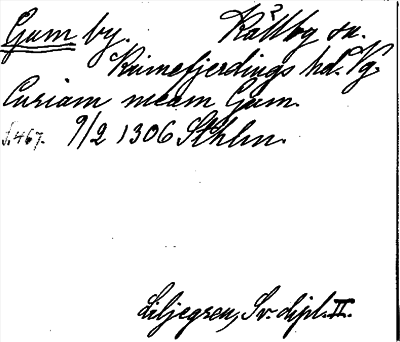 Gum by. Källby sn.
Kinnefjerdings hd. Vg.
Curiam meam Gum.
S. 467. 9/2 1306 Sthlm.
Liljegren, Sv. dipl. II.